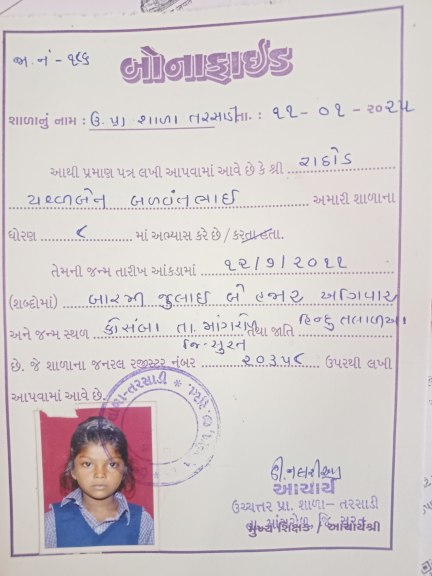 જા.નં - ૧૯૬
બોનાફાઈડ
શાળાનું નામ : ઉ.પ્રા શાળા તરસાડી તા. : ૧૧ - ૦૧ - ૨૦૨૫
આથી પ્રમાણ પત્ર લખી આપવામાં આવે છે કે શ્રી રાઠોડ
બળવંતભાઈ અમારી શાળાના
ધોરણ ૮ માં અભ્યાસ કરે છે / કરતા હતા.
તેમની જન્મ તારીખ આંકડામાં ૧૨/૭/૨૦૧૧
(શબ્દોમાં) બારમી જુલાઈ બે હજાર અગિયાર
અને જન્મ સ્થળ કોસંબા તા. માંગરોળ તથા જાતિ હિન્દુ તલાવીઆ
જિ-સુરત
છે. જે શાળાના જનરલ રજીસ્ટર નંબર ૨૦૩૫૮ ઉપરથી લખી
આપવામાં આવે છે.
શાળા-તરસાડી
આચાર્ય
ઉચ્ચત્તર પ્રા. શાળા - તરસાડી
તા. માંગરોળ જિ. સુરત
મુખ્ય શિક્ષક / આચાર્યશ્રી